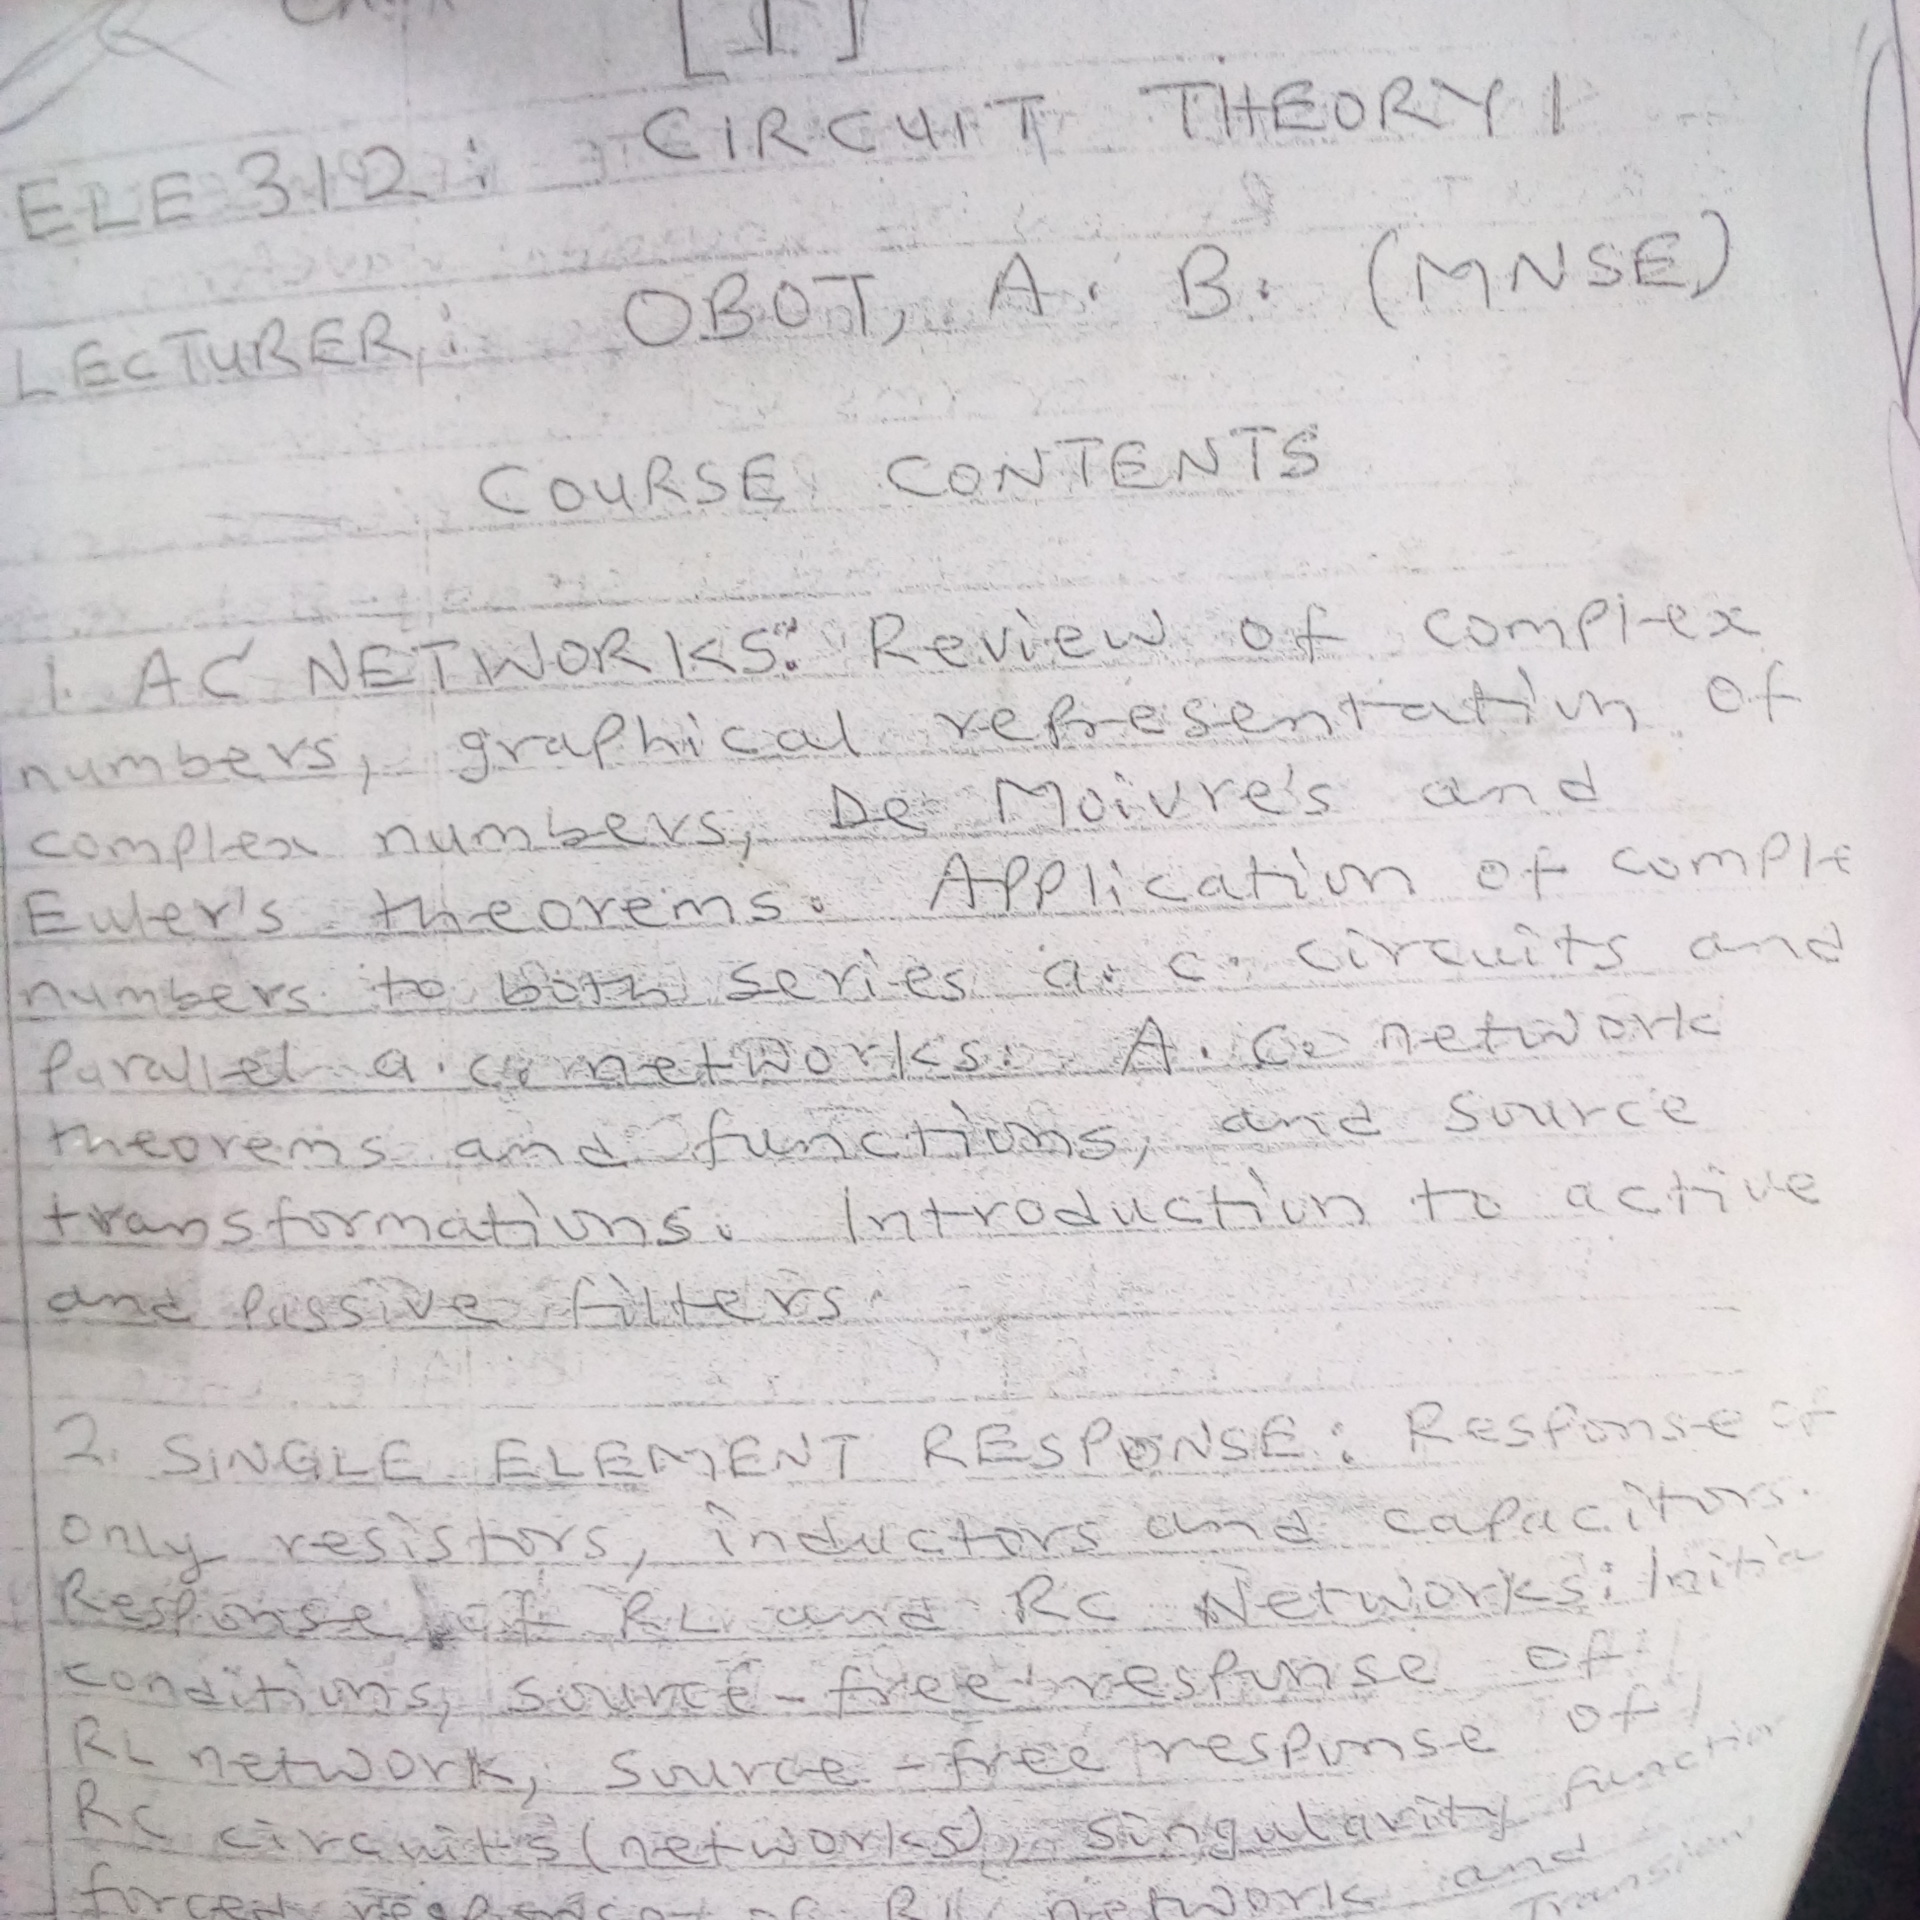 [1]
ELE 312: CIRCUIT THEORY I
LECTURER: OBOT, A. B. (MNSE)
COURSE CONTENTS
1. AC NETWORKS: Review of complex
numbers, graphical representation of
complex numbers, De Moivre's and
Euler's theorems. Application of comple
numbers to both series a.c. circuits and
parallel a.c. networks. A.C. network
theorems and functions, and source
transformations. Introduction to active
and passive filters.
2. SINGLE ELEMENT RESPONSE: Response of
only resistors, inductors and capacitors.
Response of RL and RC Networks: Initia
conditions, source-free response of
RL network, source-free response of
RC circuits (networks), singularity function
forced response of RL network and
Transien